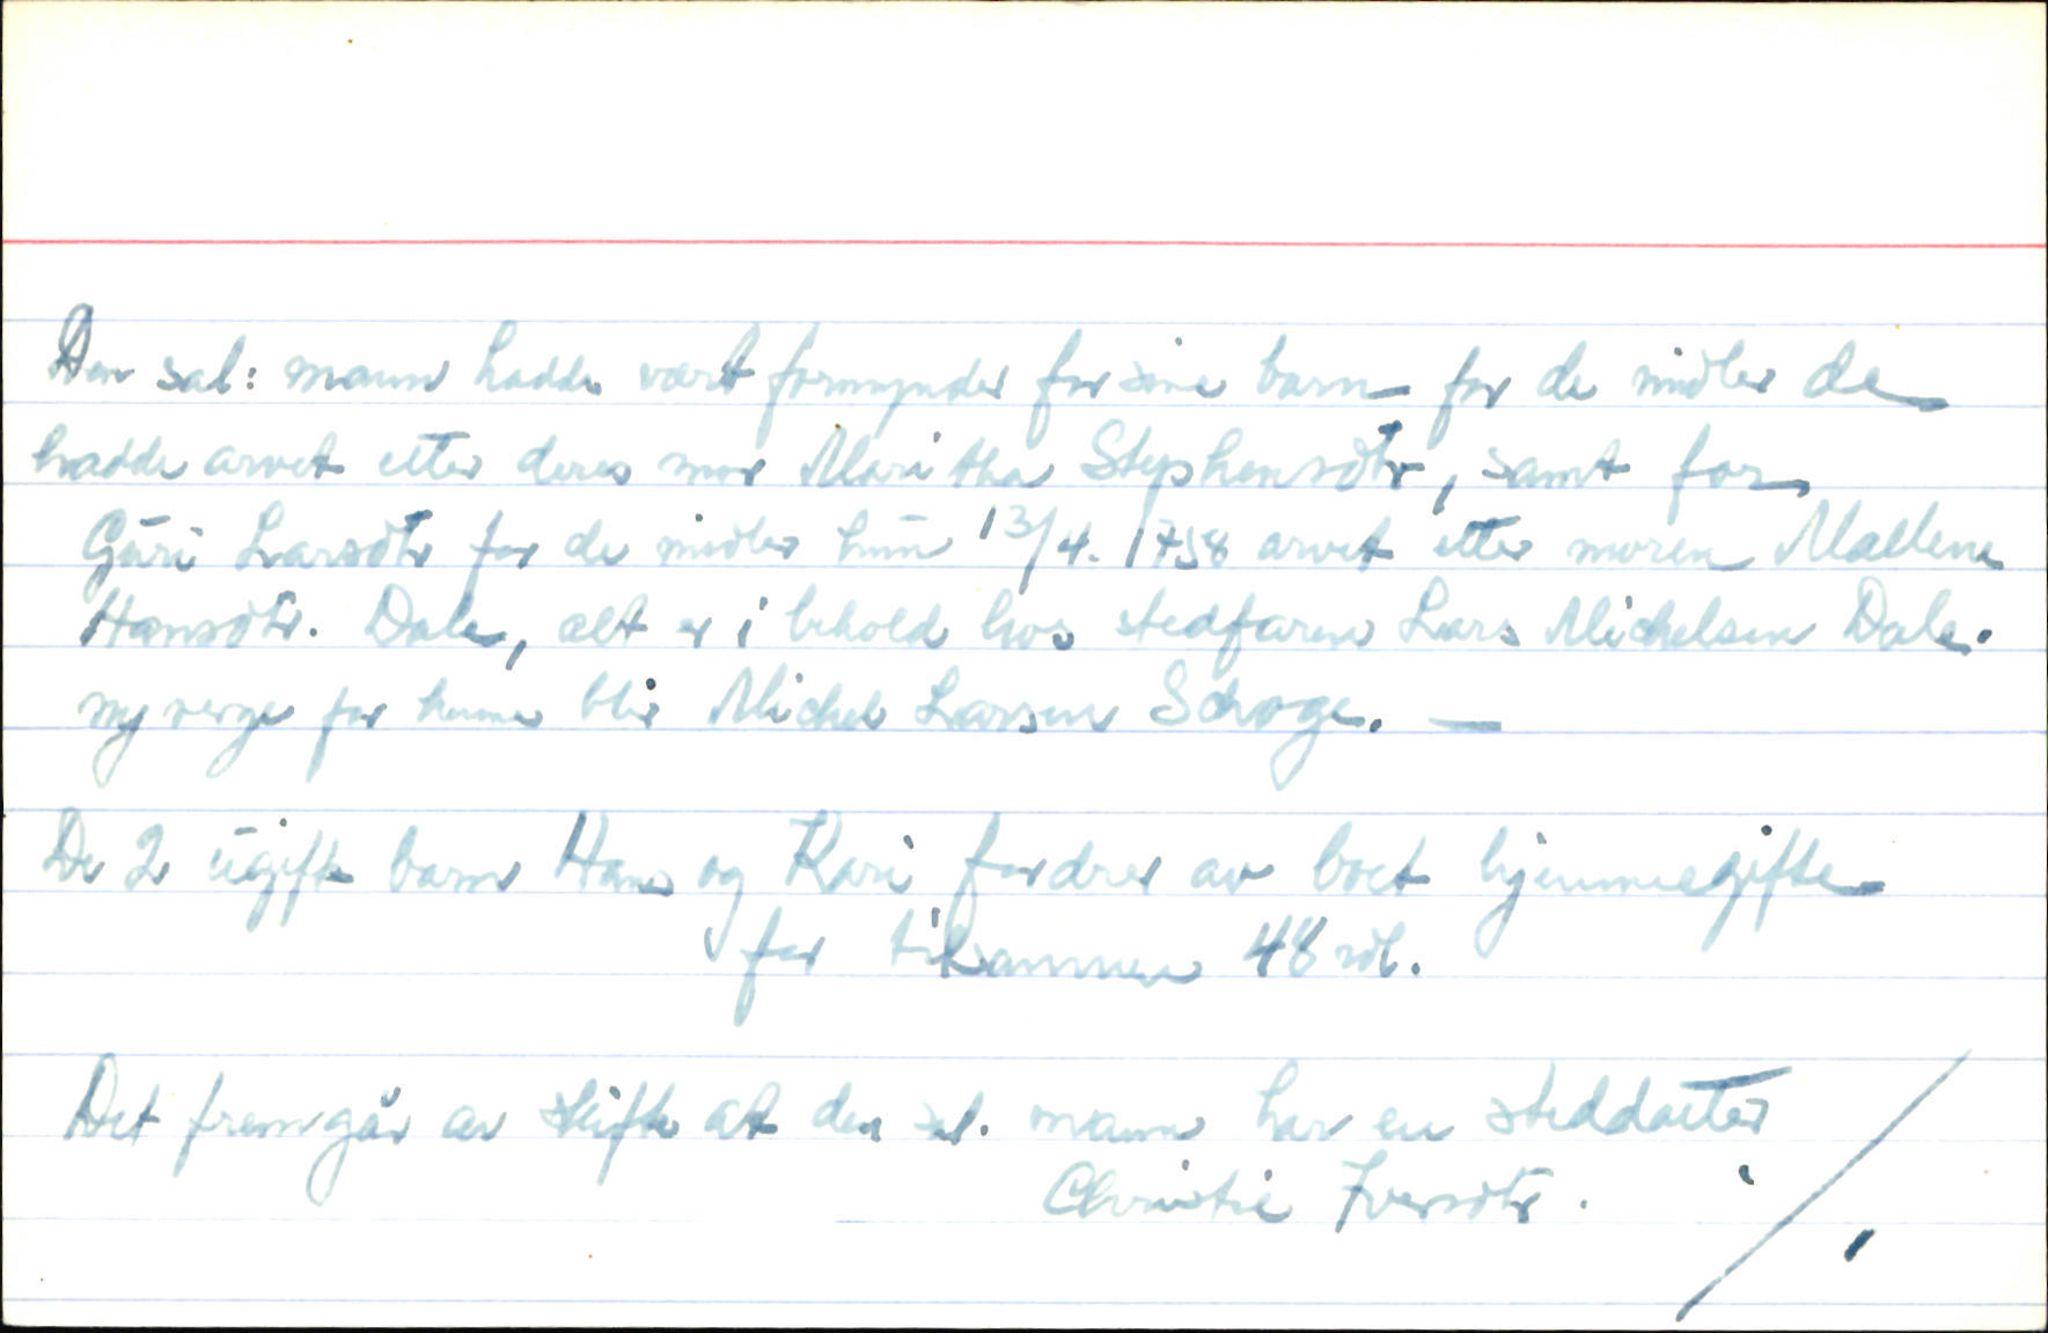 Den sal: mann hadde vært formynder for sine barn for de midler de
hadde arvet etter deres mor Maritha Stephensdtr, samt for
Guri Larsdtr for de midler hun 13/4. 1758 arvet etter moren Mallene
Hansdtr. Dale, alt er i behold hos stedfaren Lars Michelsen Dale.
ny verge for henne blir Michel Larsen Schoge. —
De 2 ugifte barn Hans og Kari fordrer av boet hjemmegifte
for tilsammen 48 rdl.
Det fremgår av skifte at den sal. mann har en steddatter
Christie Iversdtr. ./.